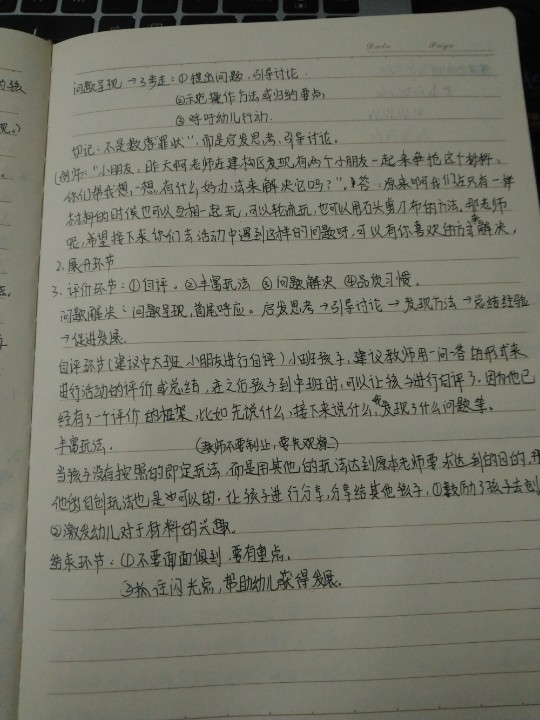 Date Page
问题呈现→3步走:①提出问题,引导讨论.
②示范操作方法或归纳要点,
③呼吁幼儿行动.
切记:不是数落"罪状",而是启发思考,引导讨论。
(例如:"小朋友,昨天啊老师在建构区发现,有两个小朋友一起来争抢这个材料。
你们帮我想一想,有什么好办法来解决它吗?"。答:原来啊我们在只有一样
材料的时候也可以互相一起玩,可以轮流玩,也可以用石头剪刀布的方法。那老师
呢,希望接下来你们去活动中遇到这样的问题时,可以有你喜欢的方式来解决,
2.展开环节
3.评价环节:①自评。②丰富玩法 ③问题解决 ④品质习惯.
问题解决:问题呈现,首尾呼应。启发思考→引导讨论→发现方法→总结经验
→促进发展.
自评环节(建议中大班小朋友进行自评)小班孩子,建议教师用一问一答的形式来
进行活动的评价或总结,在之后孩子到中班时,可以让孩子进行自评了.因为他已
经有了一个评价的框架,比如先说什么,接下来说什么,我发现了什么问题等.
丰富玩法. (教师不要制止,要先观察)
当孩子没有按照的即定玩法,而是用其他的玩法达到原本老师要求达到的目的,
他的自创玩法也是可以的.让孩子进行分享,分享给其他孩子,①鼓励了孩子去创
②激发幼儿对于材料的兴趣.
结束环节:①不要面面俱到,要有重点.
②抓住闪光点,帮助幼儿获得发展.